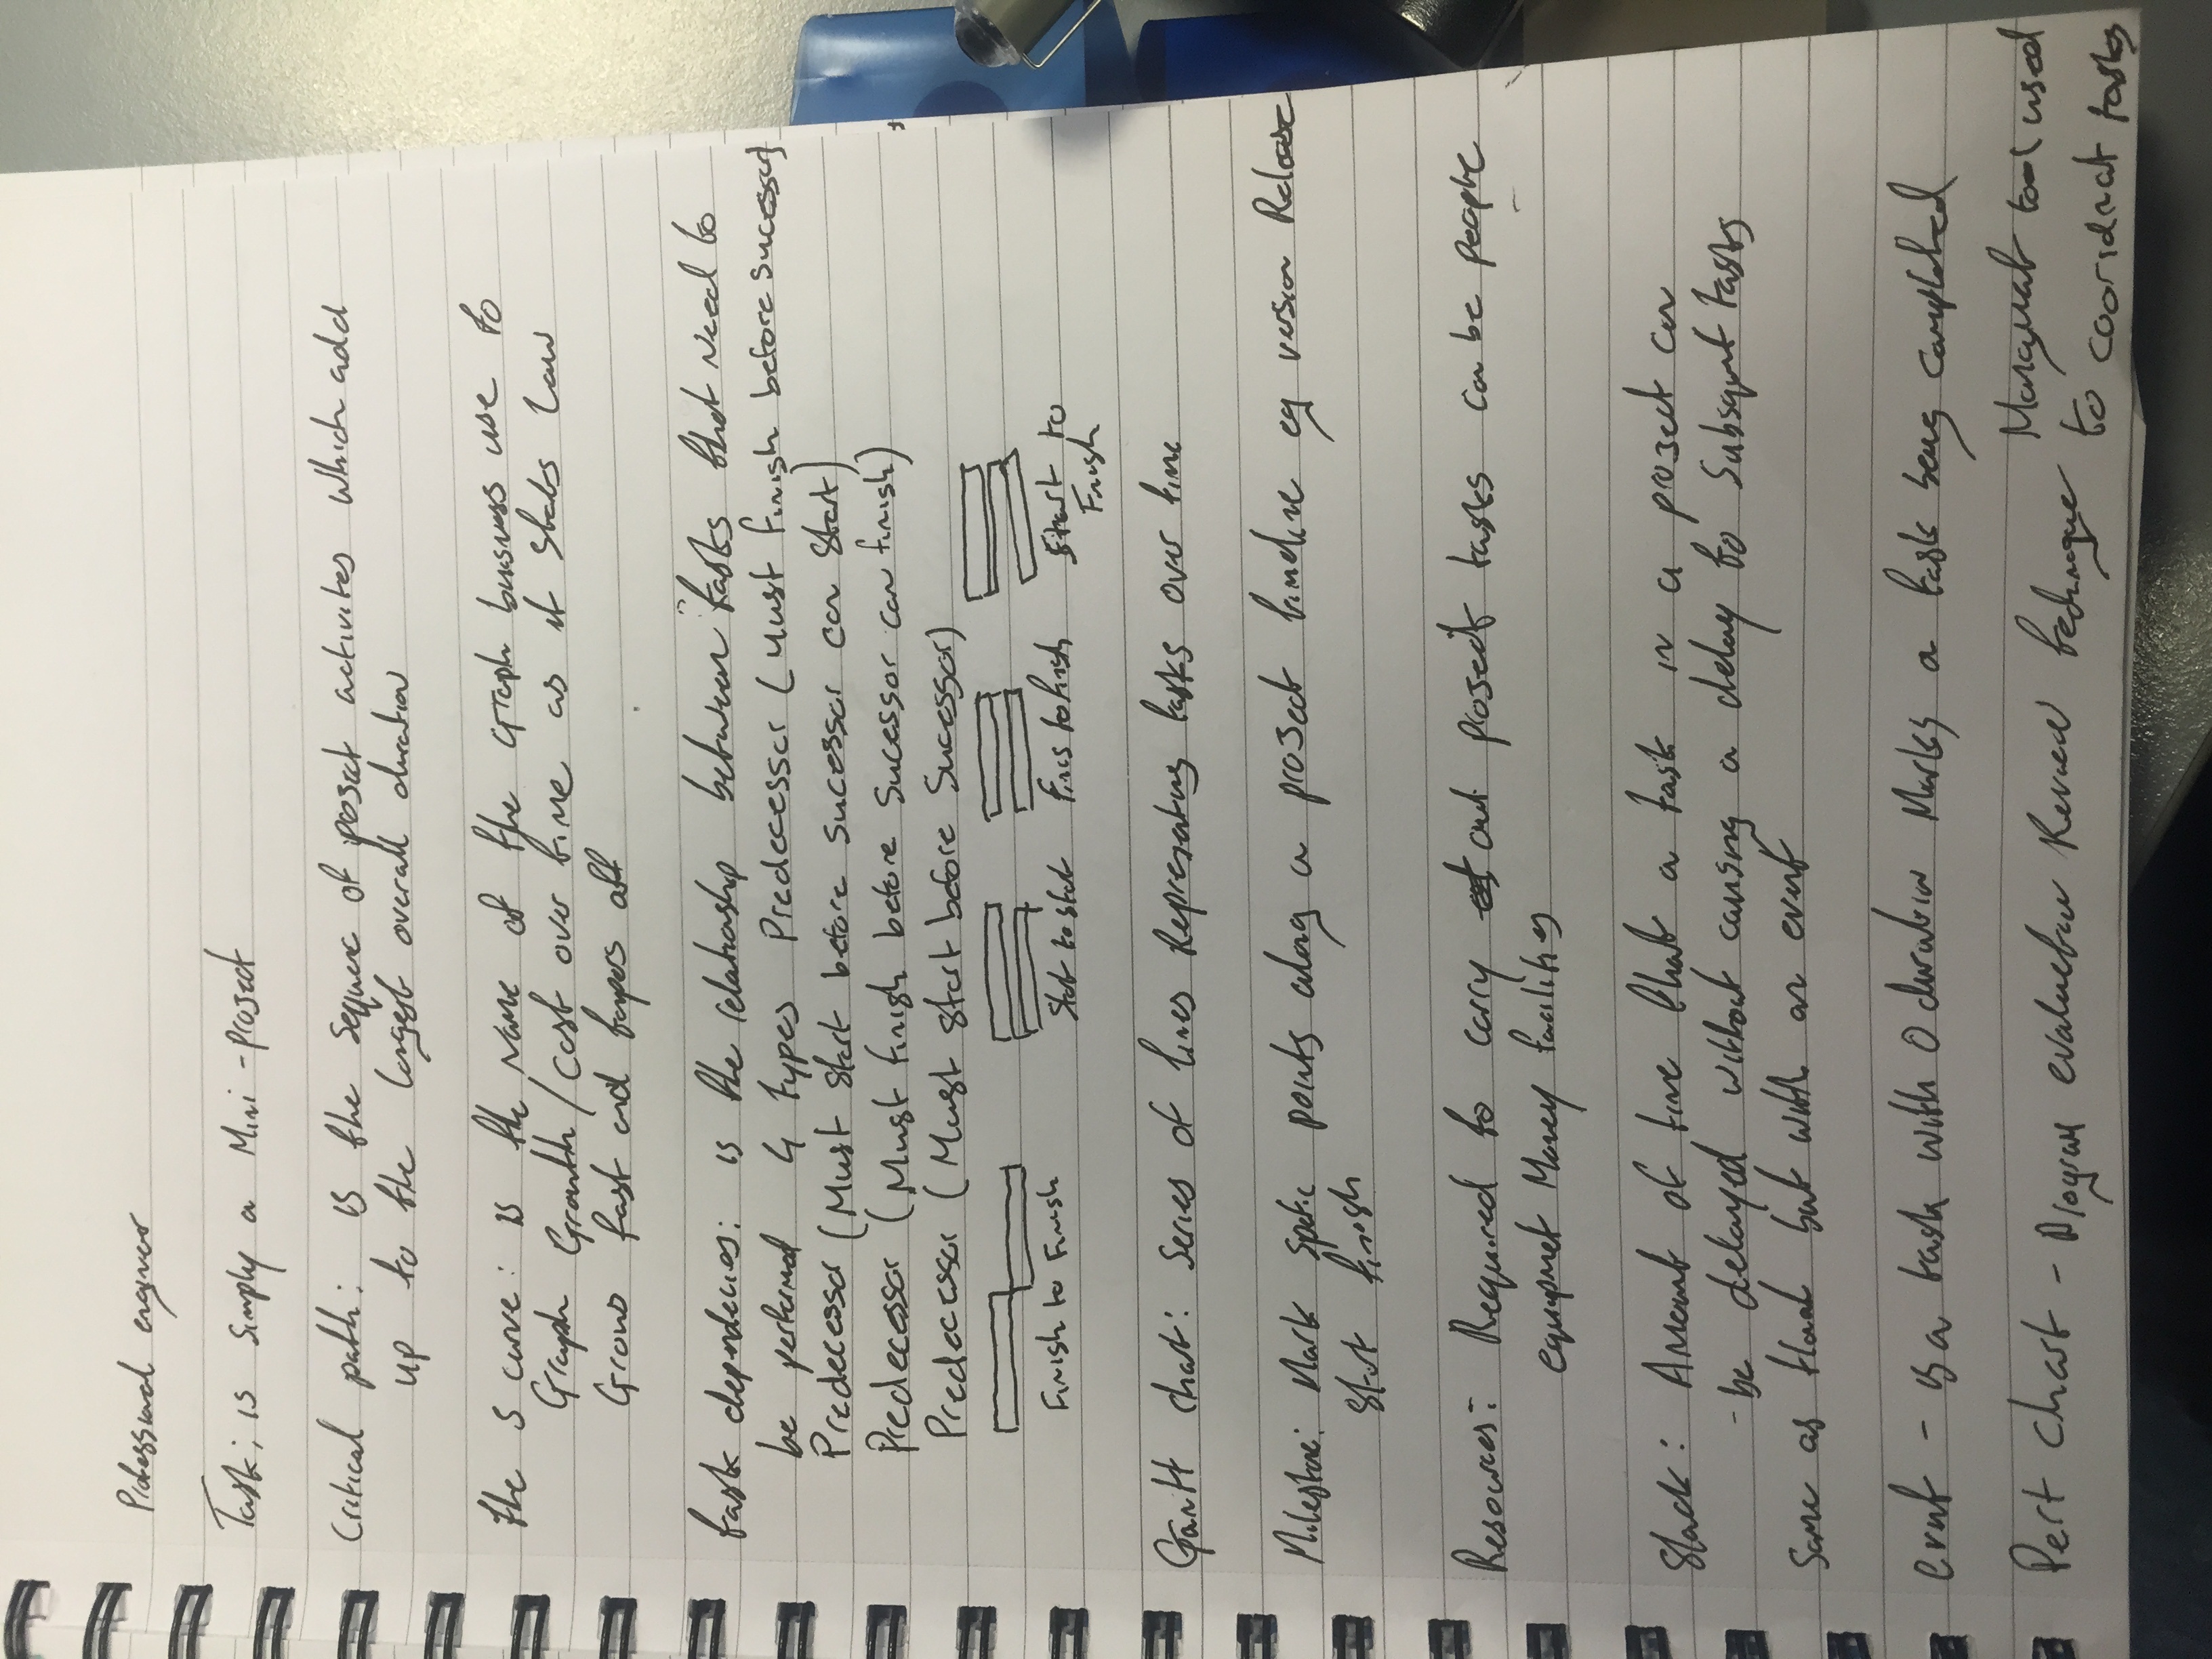 Professional engineer
Task: is simply a Mini-Project
Critical path: is the sequence of project activites which add
up to the longest overall duration
the S curve: is the name of the graph busines use to
Graph Growth/cost over time as it starts Low
Grows fast and tapers off
task dependecies: is the relationship between tasks that need to
be performed 4 types Predecessor (Must finish before successor)
Predecessor (Must start before successor can start)
Predecessor (Must finish before Successor can finish)
Predecessor (Must start before Successor)
Finish to Finish Start to start Finis to finish Start to
Finish
Gantt chart: Series of lines Representing tasks over time
Milestone: Mark specific points along a project timeline eg version Release
Start finish
Resources: Required to carry out project tasks can be people
equipment Money facilities
Slack: Amount of time that a task in a project can
- be delayed without causing a delay to Subsequent tasks
Same as float but with an event
Event - is a task with 0 duration Marks a task being completed
Pert chart - Program evaluation Review technique Managment tool used
to coordinat tasks